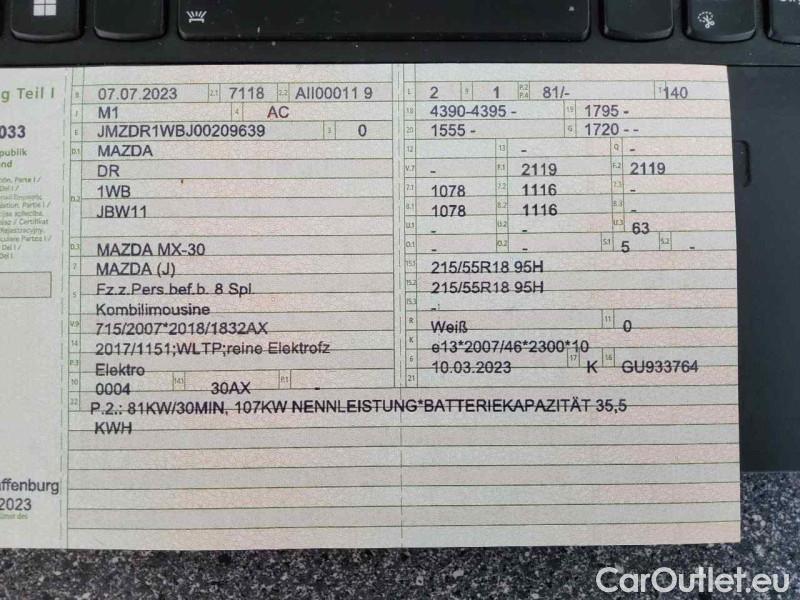 g Teil I
033
publik
and
ffenburg
2023
B 07.07.2023 2.1 7118 2.2 AII00011 9
J M1 4 AC
E JMZDR1WBJ00209639 3 0
D.1 MAZDA
DR
D.2 1WB
JBW11
D.3 MAZDA MX-30
2 MAZDA (J)
5 Fz.z.Pers.bef.b. 8 Spl.
Kombilimousine
V.9 715/2007*2018/1832AX
14 2017/1151;WLTP;reine Elektrofz
P.3 Elektro
10 0004 14.1 30AX P.1 -
22 P.2.: 81KW/30MIN, 107KW NENNLEISTUNG*BATTERIEKAPAZITÄT 35,5
KWH
L 2 9 1 P.2 P.4 81/- T 140
18 4390-4395 - 19 1795 -
20 1555 - G 1720 - -
12 - 13 - Q -
V.7 - F.1 2119 F.2 2119
7.1 1078 7.2 1116 7.3 -
8.1 1078 8.2 1116 8.3 -
U.1 - U.2 - U.3 63
O.1 - O.2 - S.1 5 S.2 -
15.1 215/55R18 95H
15.2 215/55R18 95H
15.3 -
R Weiß 11 0
K e13*2007/46*2300*10
6 10.03.2023 17 K 16 GU933764
21
CarOutlet.eu